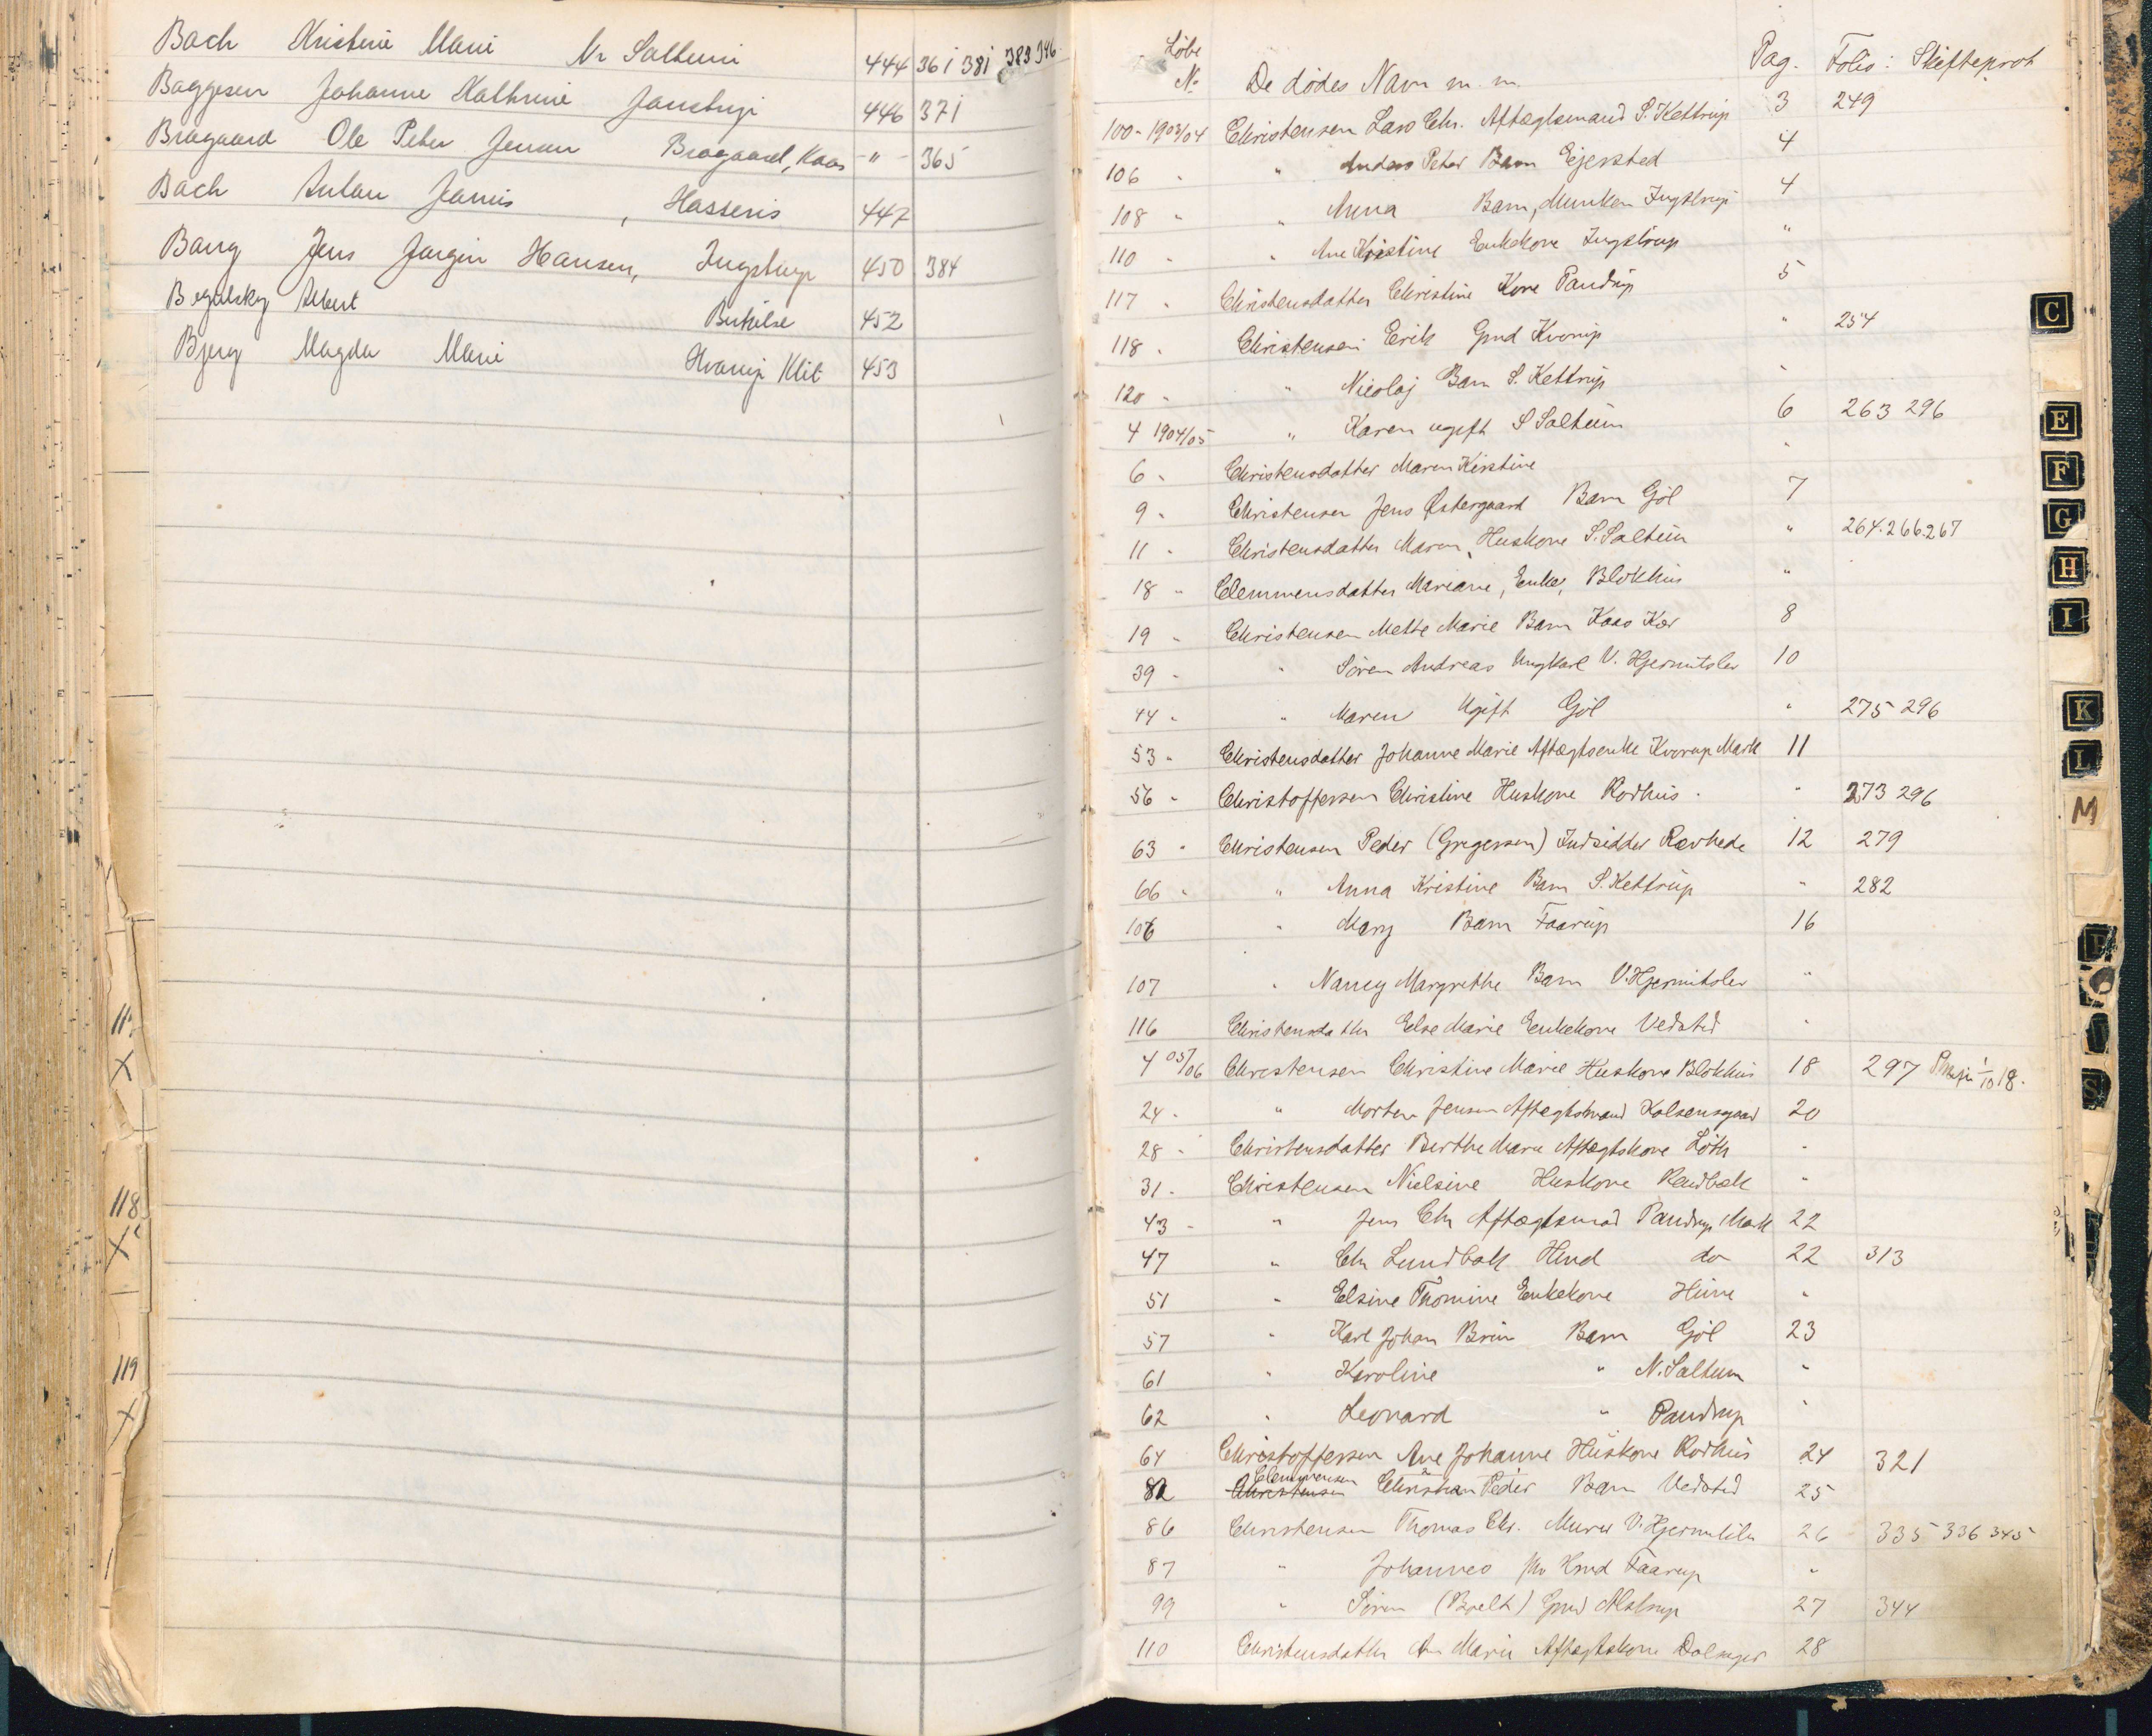 Bach Kristine Marie Nr Saltum 444 361 381 383 346
Baggesen Johanne Kathrine Janstrup 446 371
Bragaard Ole Peter Jensen Bragaard, Kaas " 365
Bach Anton Jannis, Hasseris 447
Bang Jens Jørgin Hansen, Ingstrup 450 384
Albert Birkelse 452
Bjerg Magda Marie Hvorup Klit 453
Løbe No De dødes Navn m.m. Pag. Folio: Skifteprot
100 - 1903/04 Christensen Lars Chr. Aftægtsmand S. Kettrup 3 249
106 " " Anders Peter Barn Ejersted 4
108 " " Anna Barn, Munken Ingstrup 4
110 " " Ane Kristine Enkekone Ingstrup "
117 " Christensdatter Christine Kone Pandrup 5
118 " Christensen Erik Gmd Kvorup " 254
120 " " Nicolaj Barn S. Kettrup "
4 1904/05 " Karen ugift S Saltum 6 263 296
6 " Christensdatter Maren Kirstine "
9 " Christensen Jens Østergaard Barn Gjøl 7
11 " Christensdatter Maren, Huskone S. Saltum " 264. 266. 267
18 " Clemmensdatter Mariane, Enke, Blokhus "
19 " Christensen Mette Marie Barn Kaas Kær 8
39 " " Søren Andreas Ungkarl V. Hjermitslev 10
44 " " Maren Ugift Gjøl " 275 296
53 " Christensdatter Johanne Marie Aftægtsenke Kvorup Mark 11
56 " Christoffersen Christine Huskone Rødhus " 273 296
63 " Christensen Peder (Gregersen) Indsidder Rævhede 12 279
66 " " Anna Kristine Barn S. Kettrup " 282
106 " Mary Barn Faarup 16
107 " Nancy Margrethe Barn V. Hjermitslev "
116 Christensdatter Else Marie Enkekone Vedsted "
4 05/06 Christensen Christine Marie Huskone Blokhus 18 297 1/10 18.
24 " " Morten Jensen Aftægtsmand Kolsensgaard 20
28 " Christensdatter Birthe Marie Aftægtskone Løth "
31 " Christensen Nielsine Huskone Rendbæk "
43 " " Jens Chr Aftægtsmd Pandrup Mark 22
47 " Chr Lundbak Hmd do 22 313
51 " Elsine Thomine Enkekone Hune "
57 " Karl Johan Brix Barn Gjøl 23
61 " Karoline " N. Saltum "
62 " Leonard " Pandrup "
64 Christoffersen Ane Johanne Huskone Rødhus 24 321
82 Christensen Clemmensen Christian Peder Barn Vedsted 25
86 Christensen Thomas Chr. Murer V. Hjermitslev 26 335 336 345
87 " Johannes Hmd Faarup "
99 " Søren (Bælt) Gmd Alstrup 27 344
110 Christensdatter Ane Marie Aftægtskone Dolsager 28
C
E
F
G
H
I
K
L
M
S
118
X
119
X